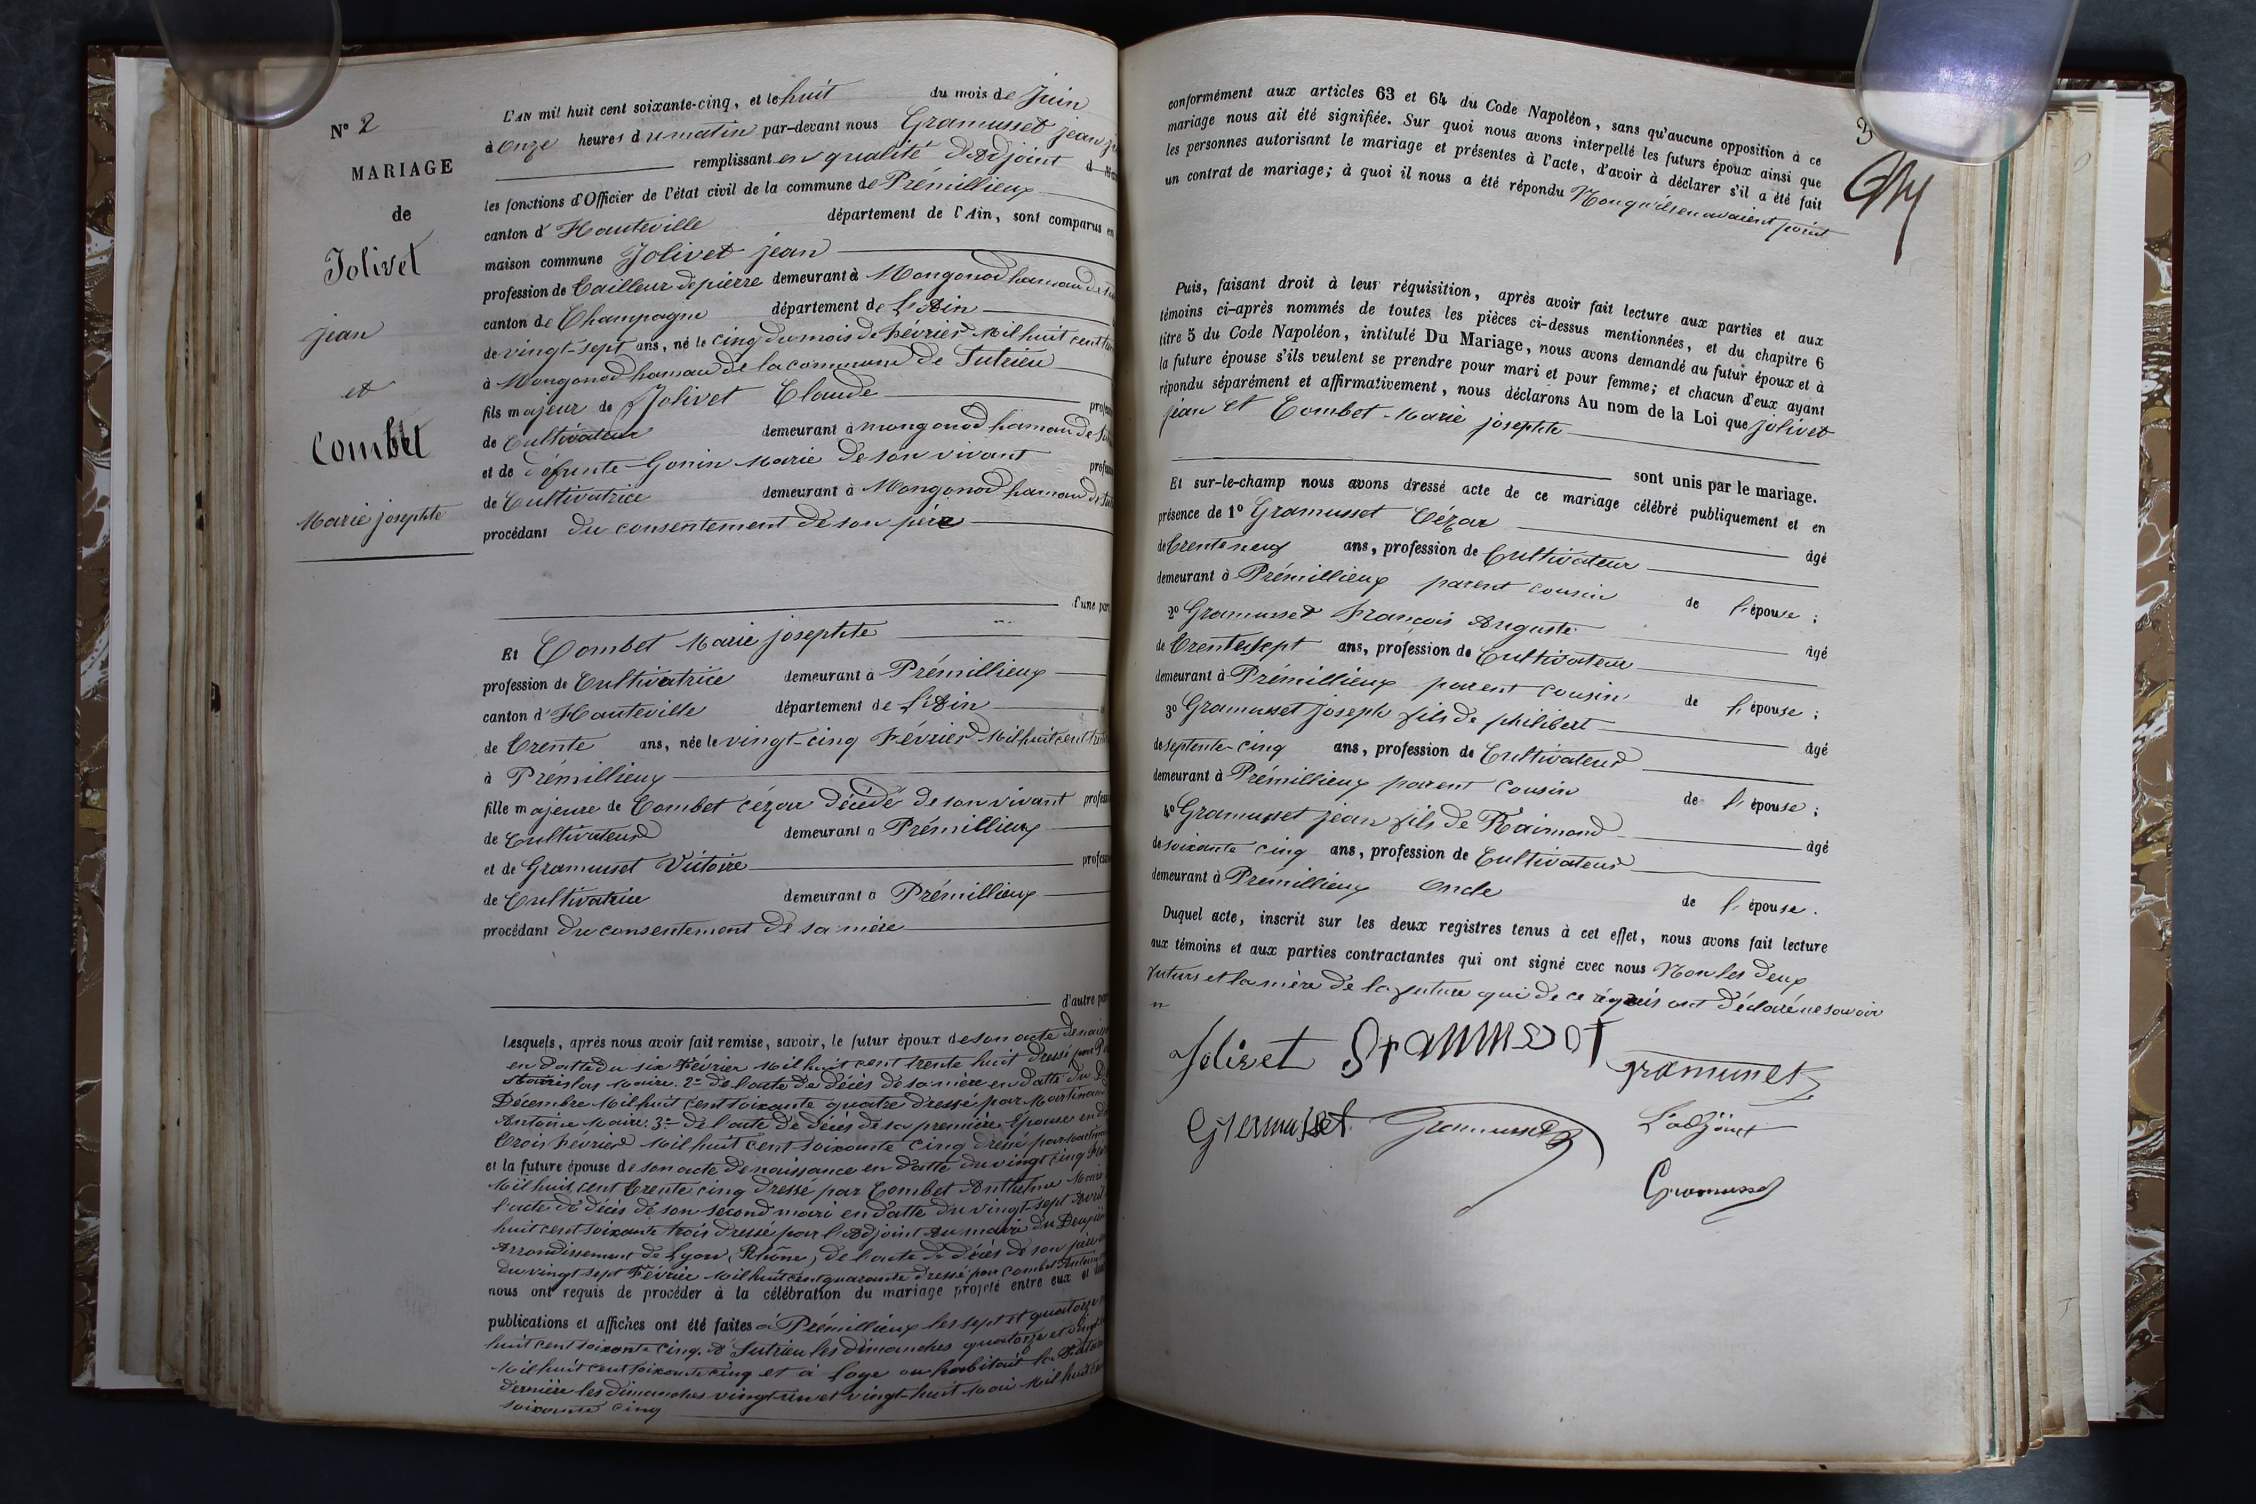 N° 2
MARIAGE
de
Jolivet
jean
et
Combet
Marie josephte
L'AN mil huit cent soixante-cinq, et le huit du mois de Juin
à onze heures du matin par-devant nous Gramusset jean
remplissant en qualité d'Adjoint d
les fonctions d'Officier de l'état civil de la commune de Prémillieux
canton d'Hauteville département de l'Ain, sont comparus en
maison commune Jolivet jean
profession de Tailleur de pierre demeurant à Mongonod hameau de
canton de Champagne département de l'Ain
de vingt-sept ans, né le cinq du mois de Février Mil huit cent
à Mongonod hameau de la commune de Sutrieu
fils majeur de Jolivet Claude
de Cultivateur demeurant à mongonod hameau de
et de défunte Gonin Marie de son vivant
de Cultivatrice demeurant à Mongonod hameau de
procédant du consentement de son père
d'une part
Et Combet Marie josephte
profession de Cultivatrice demeurant à Prémillieux
canton d'Hauteville département de l'Ain
de trente ans, née le vingt-cinq Février Mil huit cent
à Prémillieux
fille majeure de Combet Cézar décédé de son vivant
de Cultivateur demeurant à Prémillieux
et de Gramusset Victoire
de Cultivatrice demeurant à Prémillieux
procédant du consentement de sa mère
d'autre part
Lesquels, après nous avoir fait remise, savoir, le futur époux de son acte de
en datte du six Février Mil huit cent trente huit dressé par
Maire. 2° de l'acte de décès de sa mère en datte du
Décembre Mil huit cent soixante quatre dressé par Martinand
Antoine Maire. 3° de l'acte de décès de sa première Epouse en
trois Février Mil huit cent soixante cinq dressé par
et la future épouse de son acte de naissance en datte du vingt cinq
Mil huit cent trente cinq dressé par Combet Anthelme Maire
l'acte de décès de son second mari en datte du vingt-sept Avril
huit cent soixante trois dressé par l'adjoint au maire du Deuxième
Arrondissement de Lyon (Rhône), de l'acte de décès de son père
du vingt sept Février Mil huit cent quarante dressé par Combet
nous ont requis de procéder à la célébration du mariage projeté entre eux et
publications et affiches ont été faites à Prémillieux les sept et quatorze
huit cent soixante cinq. à Sutrieu les dimanches quatorze et vingt
Mil huit cent soixante cinq et à Loye ou habitait la
dernière les dimanches vingt-un et vingt-huit Mai Mil huit
soixante cinq
conformément aux articles 63 et 64 du Code Napoléon, sans qu'aucune opposition à ce
mariage nous ait été signifiée. Sur quoi nous avons interpellé les futurs époux ainsi que
les personnes autorisant le mariage et présentes à l'acte, d'avoir à déclarer s'il a été fait
un contrat de mariage; à quoi il nous a été répondu Non qu'ils en avaient point
Puis, faisant droit à leur réquisition, après avoir fait lecture aux parties et aux
témoins ci-après nommés de toutes les pièces ci-dessus mentionnées, et du chapitre 6
titre 5 du Code Napoléon, intitulé Du Mariage, nous avons demandé au futur époux et à
la future épouse s'ils veulent se prendre pour mari et pour femme; et chacun d'eux ayant
répondu séparément et affirmativement, nous déclarons Au nom de la Loi que jolivet
jean et Combet Marie josephte
sont unis par le mariage.
Et sur-le-champ nous avons dressé acte de ce mariage célébré publiquement et en
présence de 1° Gramusset Cézar âgé
de trente neuf ans, profession de Cultivateur
demeurant à Prémillieux parent cousin de l'épouse;
2° Gramusset François Auguste âgé
de trente sept ans, profession de Cultivateur
demeurant à Prémillieux parent cousin de l'épouse;
3° Gramusset joseph fils de philibert âgé
de septente-cinq ans, profession de Cultivateur
demeurant à Prémillieux parent Cousin de l'épouse;
4° Gramusset jean fils de Raimond âgé
de soixante cinq ans, profession de Cultivateur
demeurant à Prémillieux oncle de l'épouse.
Duquel acte, inscrit sur les deux registres tenus à cet effet, nous avons fait lecture
aux témoins et aux parties contractantes qui ont signé avec nous Non les deux
futurs et la mère de la future qui de ce réquis ont déclaré ne savoir
Jolivet Gramusset gramuset
Gramusset Gramusset L'adjoint
Gramusset